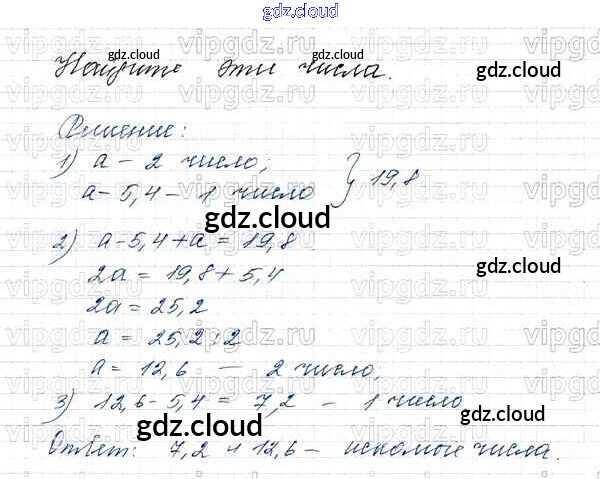 gdz.cloud
Найдите эти числа.
gdz.cloud gdz.cloud gdz.cloud
Решение:
1) a - 2 число;
a - 5,4 - 1 число } 19,8
gdz.cloud
gdz.cloud
2) a - 5,4 + a = 19,8
2a = 19,8 + 5,4
gdz.cloud
2a = 25,2
a = 25,2 : 2
a = 12,6 — 2 число;
gdz.cloud
3) 12,6 - 5,4 = 7,2 - 1 число
gdz.cloud
gdz.cloud
Ответ: 7,2 и 12,6 - искомые числа.
vipgdz.ru